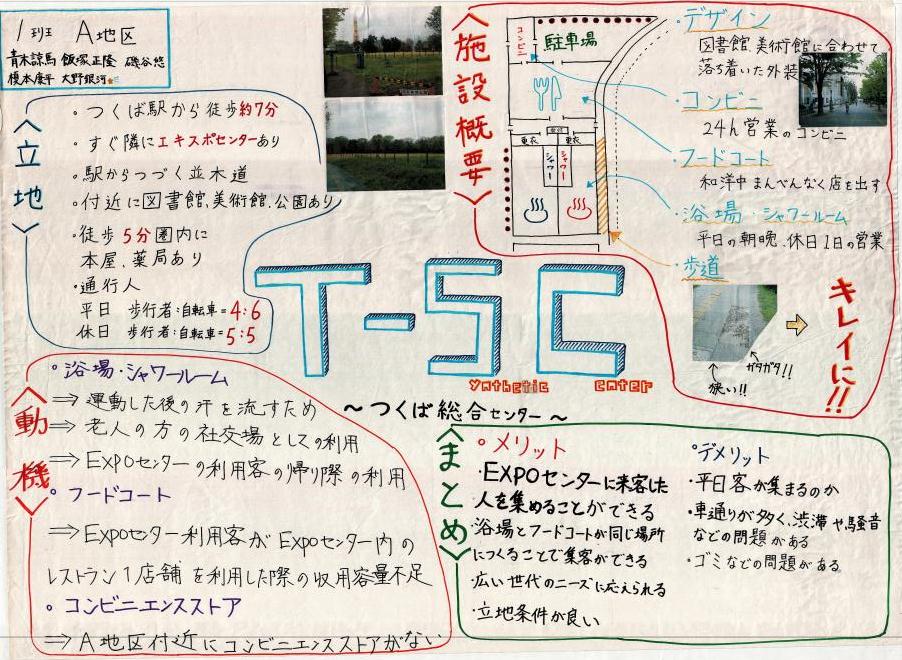 1班 A地区
青木諒馬 飯塚正隆 磯谷悠
榎本康平 大野銀河
〈立地〉
・つくば駅から徒歩約7分
・すぐ隣にエキスポセンターあり
・駅からつづく並木道
・付近に図書館、美術館、公園あり
・徒歩5分圏内に
本屋、薬局あり
・通行人
平日 歩行者:自転車=4:6
休日 歩行者:自転車=5:5
〈施設概要〉
コンビニ
駐車場
更衣
更衣
シャワー
シャワー
・デザイン
図書館、美術館に合わせて
落ち着いた外装
・コンビニ
24h営業のコンビニ
・フードコート
和洋中まんべんなく店を出す
・浴場・シャワールーム
平日の朝晩、休日1日の営業
・歩道
狭い!!
ガタガタ!!
キレイに!!
T-SC
ynthetic
enter
〜つくば総合センター〜
〈動機〉
・浴場・シャワールーム
⇒運動した後の汗を流すため
⇒老人の方の社交場としての利用
⇒EXPOセンターの利用客の帰り際の利用
・フードコート
⇒Expoセンター利用客がExpoセンター内の
レストラン1店舗を利用した際の収用容量不足
・コンビニエンスストア
⇒A地区付近にコンビニエンスストアがない
〈まとめ〉
・メリット
・EXPOセンターに来客した
人を集めることができる
・浴場とフードコートが同じ場所
につくることで集客ができる
・広い世代のニーズに応えられる
・立地条件が良い
・デメリット
・平日客が集まるのか
・車通りが多く、渋滞や騒音
などの問題がある
・ゴミなどの問題がある